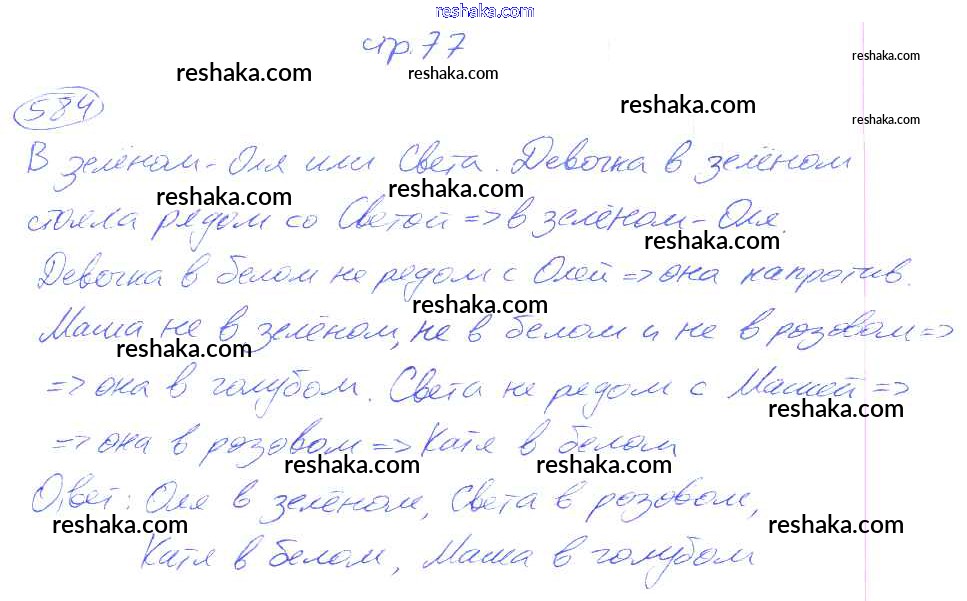 reshaka.com
стр. 77
reshaka.com
reshaka.com
reshaka.com
reshaka.com
584
reshaka.com
В зелёном - Оля или Света. Девочка в зелёном
reshaka.com
reshaka.com
стояла рядом со Светой => в зелёном - Оля.
reshaka.com
Девочка в белом не рядом с Олей => она напротив.
reshaka.com
Маша не в зелёном, не в белом и не в розовом =>
reshaka.com
=> она в голубом. Света не рядом с Машей =>
reshaka.com
=> она в розовом => Катя в белом
reshaka.com
reshaka.com
Ответ: Оля в зелёном, Света в розовом,
reshaka.com
reshaka.com
Катя в белом, Маша в голубом